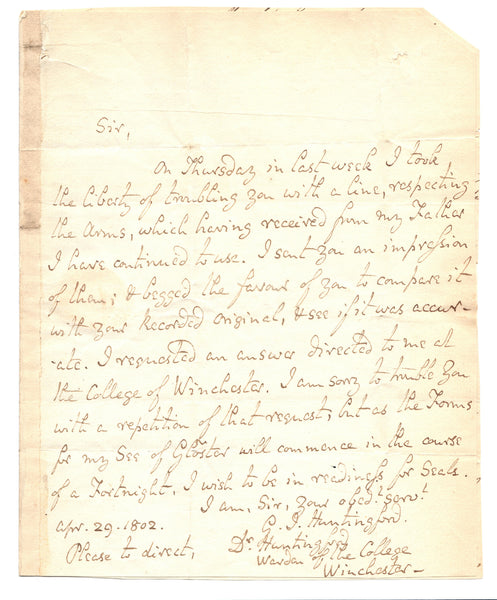 Sir,
On Thursday in last week I took
the liberty of troubling you with a line, respecting
the Arms, which having received from my Father
I have continued to use. I sent you an impression
of them; & begged the favour of you to compare it
with your Recorded original, & see if it was accur-
-ate. I requested an answer directed to me at
the College of Winchester. I am sorry to trouble you
with a repetition of that request; but as the Forms
for my See of Gloster will commence in the course
of a Fortnight, I wish to be in readiness for Seals.
I am, Sir, your obedt. servt.
G. I. Huntingford.
Apr. 29. 1802.
Please to direct, Dr. Huntingford
Warden of the College
Winchester -